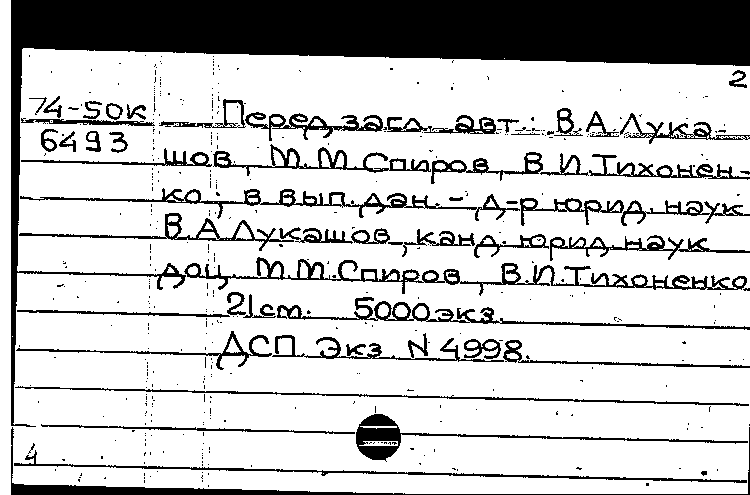 2
74-50к
6493
Перед загл. авт.: В.А.Лука-
шов, М.М.Спиров, В.И.Тихонен-
ко; в вып.дан. - д-р юрид. наук
В.А.Лукашов, канд. юрид. наук
доц. М.М.Спиров, В.И.Тихоненко
21 cm. 5000 экз.
ДСП. Экз. N 4998.
4